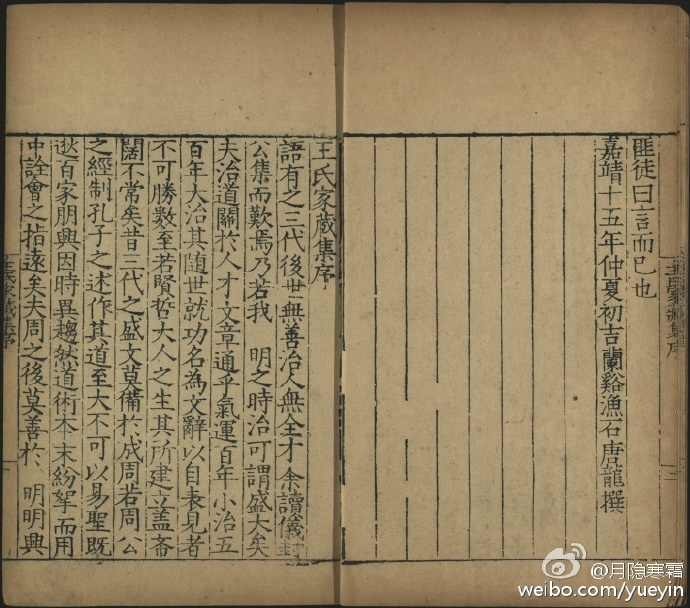 匪徒曰言而已也
嘉靖十五年仲夏初吉蘭谿漁石唐龍撰
王氏家藏集序
語有之三代後世無善治人無全才余讀儀封
公集而歎焉乃若我 明之時治可謂盛大矣
夫治道關於人才文章通乎氣運百年小治五
百年大治其隨世就功名為文辭以自表見者
不可勝數至若賢哲大人之生其所建立蓋奇
闊不常矣昔三代之盛文莫備於成周若周公
之經制孔子之述作其道至大不可以易聖既
逖百家朋興因時異趨然道術本末紛挐而用
中詮會之指遠矣夫周之後莫善於 明明興
王氏家藏集序
@月隐寒霜
weibo.com/yueyin